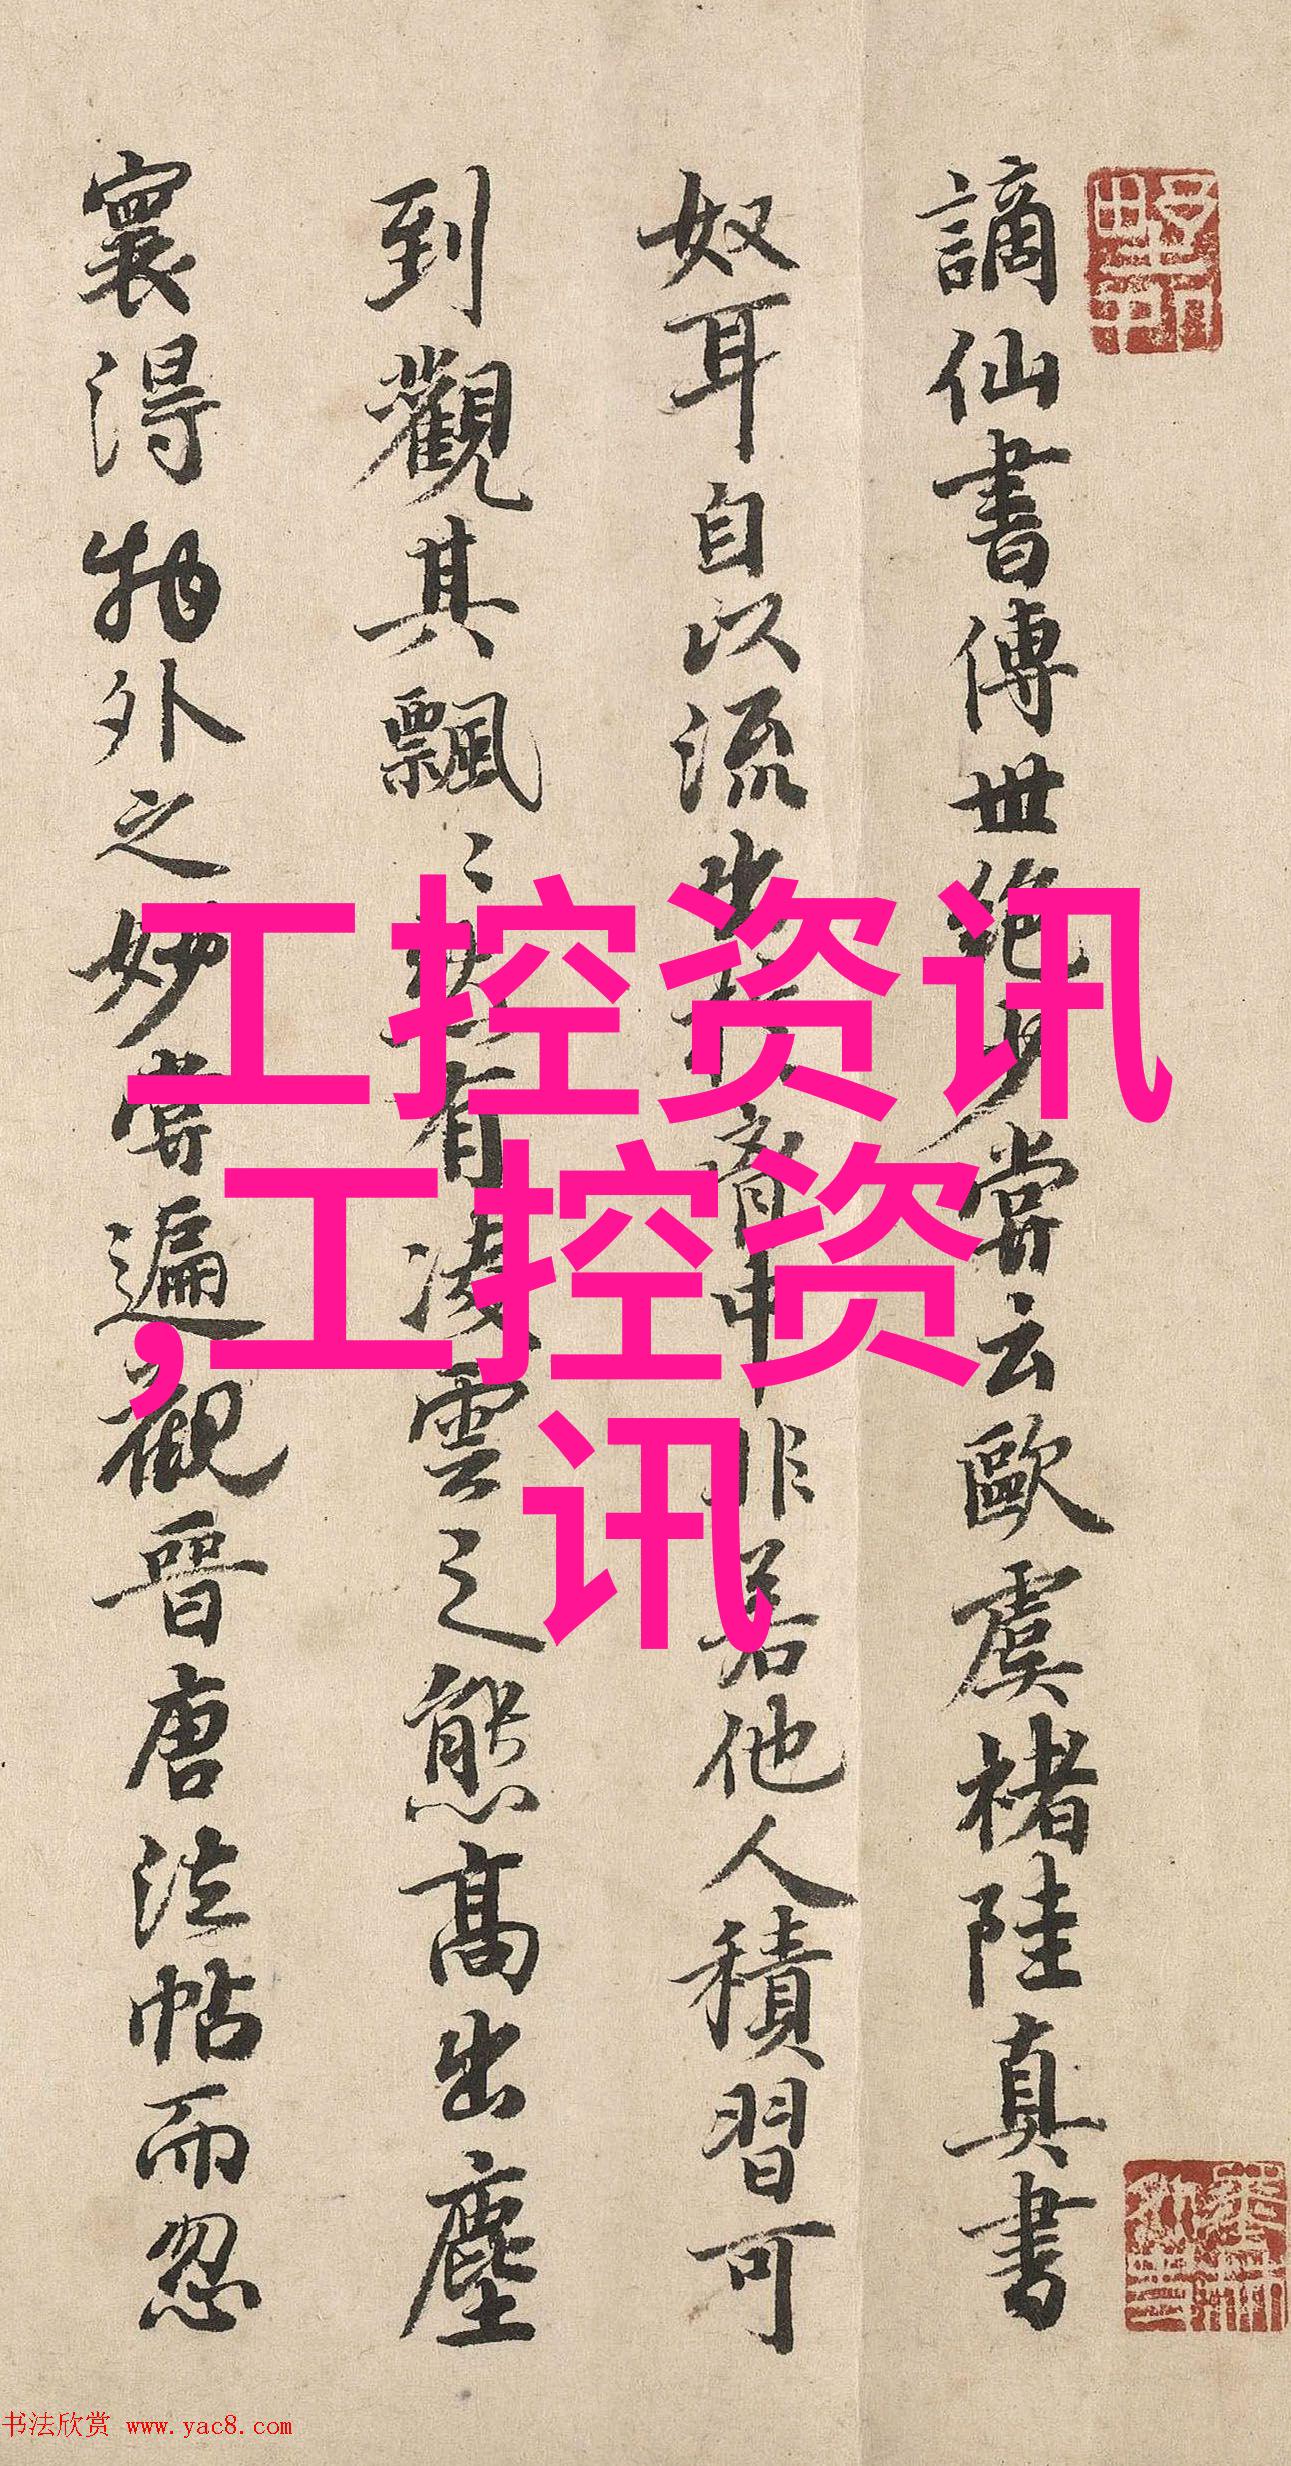 謫仙書傳世絶少嘗云歐虞褚陸真書
奴耳自以流出於胷中非若他人積習可
到觀其飄〻然有凌雲之態高出塵
寰得物外之妙嘗遍觀晉唐法帖而忽
工控资讯
,工控资
讯
书法欣赏 www.yac8.com